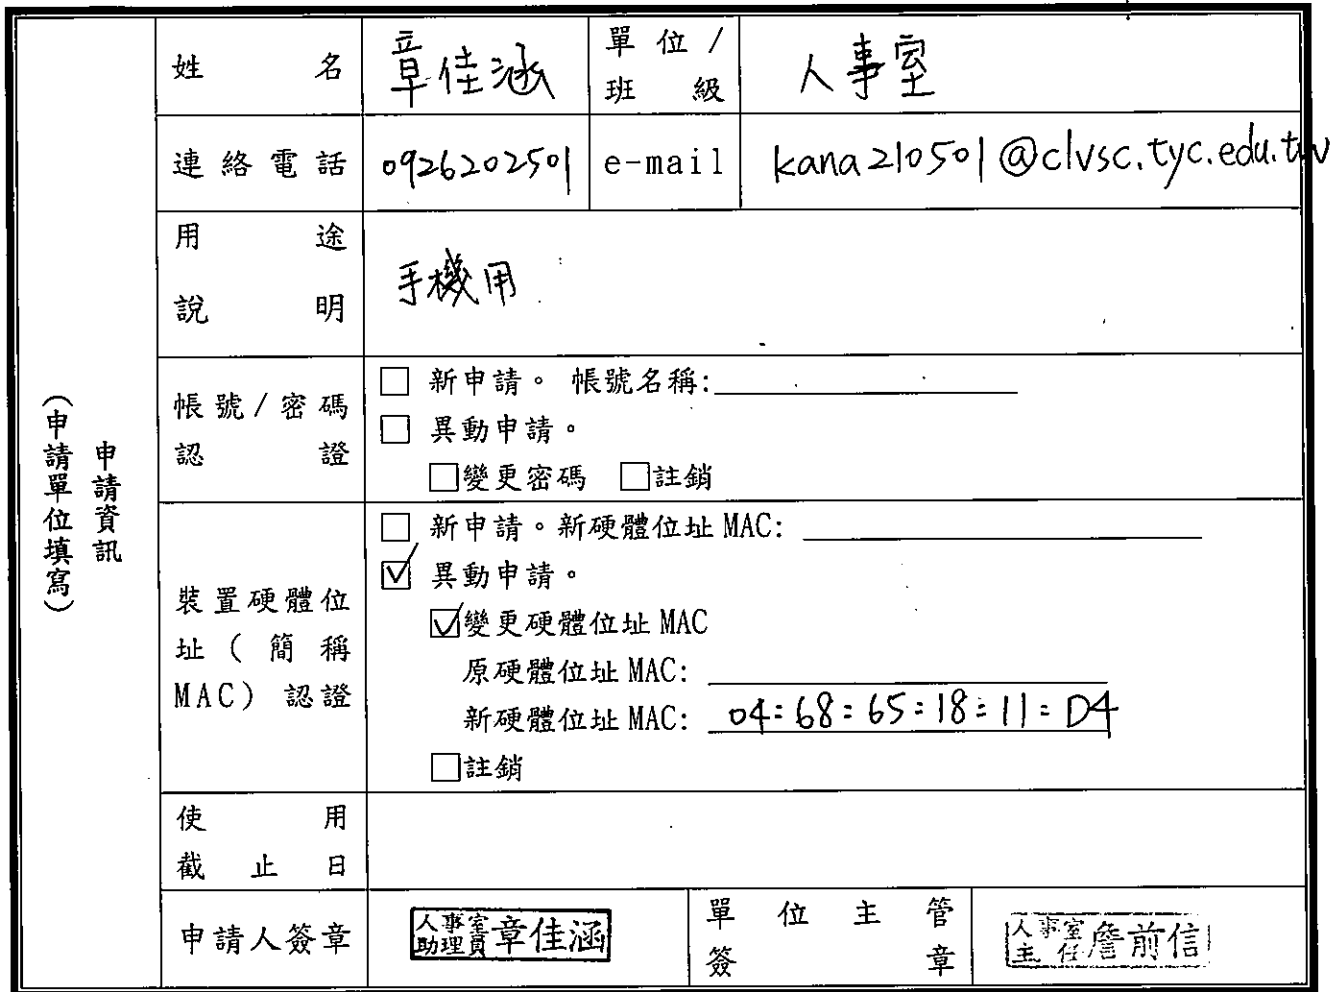 申請資訊
(申請單位填寫)
姓名 章佳涵 單位/班級 人事室
連絡電話 0926202501 e-mail kana210501@clvsc.tyc.edu.tw
用途說明 手機用
帳號/密碼認證
□ 新申請。 帳號名稱:
□ 異動申請。
□變更密碼 □註銷
裝置硬體位址(簡稱MAC)認證
□ 新申請。新硬體位址 MAC:
☑ 異動申請。
☑變更硬體位址 MAC
原硬體位址 MAC:
新硬體位址 MAC: 04:68:65:18:11:D4
□註銷
使用截止日
申請人簽章 人事室助理員 章佳涵 單位主管簽章 人事室主任 詹前信